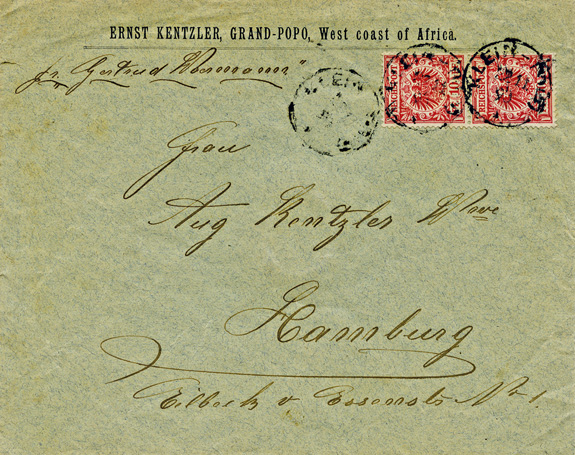 ERNST KENTZLER, GRAND-POPO, West coast of Africa.
pr. "Gertrud Woermann"
KLEIN
Frau
Aug Kentzler Wwe
Hamburg
Eilbeck v Essenstr No 1.